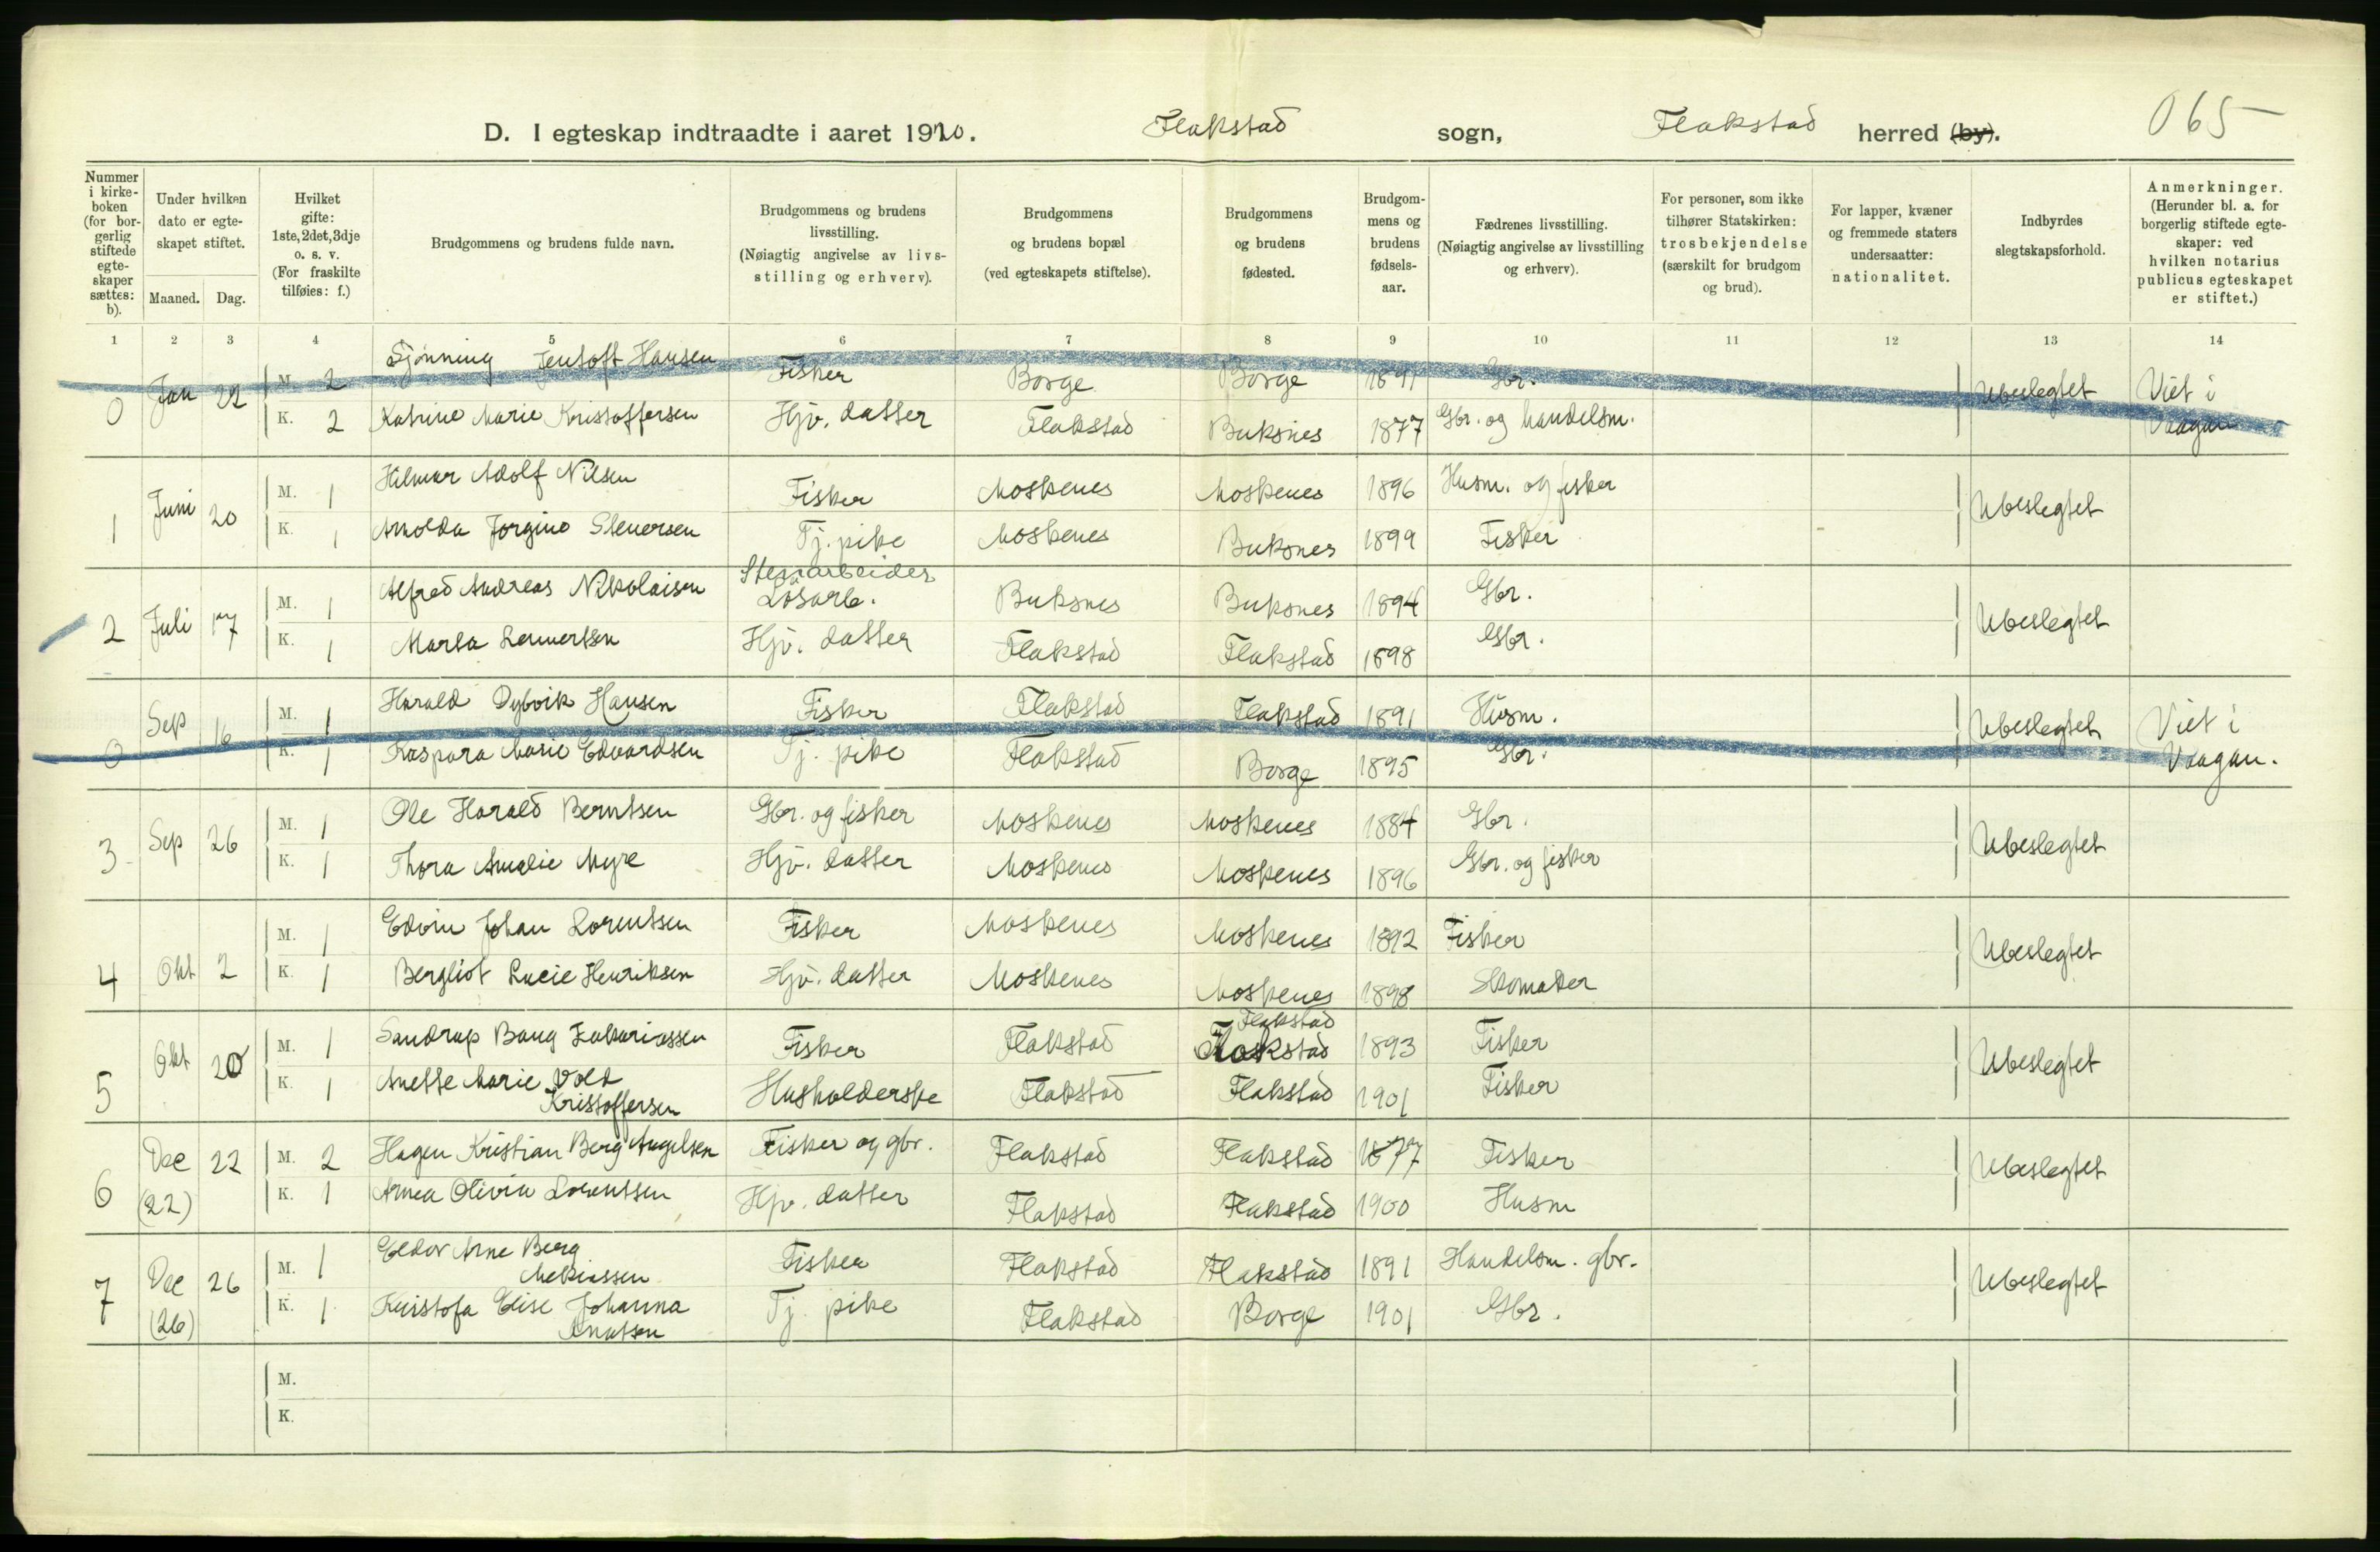 D. I egteskap indtraadte i aaret 1920. Flakstad sogn, Flakstad herred (by). 065
Nummer i kirkeboken (for borgerlig stiftede egteskaper sættes: b).
Under hvilken dato er egteskapet stiftet.
Maaned. Dag.
Hvilket gifte: 1ste, 2det, 3dje o. s. v. (For fraskilte tilføies: f.)
Brudgommens og brudens fulde navn.
Brudgommens og brudens livsstilling. (Nøiagtig angivelse av livsstilling og erhverv).
Brudgommens og brudens bopæl (ved egteskapets stiftelse).
Brudgommens og brudens fødested.
Brudgommens og brudens fødselsaar.
Fædrenes livsstilling. (Nøiagtig angivelse av livsstilling og erhverv).
For personer, som ikke tilhører Statskirken: trosbekjendelse (særskilt for brudgom og brud).
For lapper, kvæner og fremmede staters undersaatter: nationalitet.
Indbyrdes slegtskapsforhold.
Anmerkninger. (Herunder bl. a. for borgerlig stiftede egteskaper: ved hvilken notarius publicus egteskapet er stiftet.)
1 2 3 4 5 6 7 8 9 10 11 12 13 14
0 Jan 22 M. 2 Jentoft Hansen Fisker Borge Borge 1891 Gbr. Ubeslegtet Viet i Vaagan
K. 2 Katrine Marie Kristoffersen Hjv. datter Flakstad Buksnes 1877 Gbr. og handelsm.
1 Juni 20 M. 1 Hilmar Adolf Nilsen Fisker Moskenes Moskenes 1896 Husm. og fisker Ubeslegtet
K. 1 Arnolda Jorgine Stenersen Tj. pike Moskenes Buksnes 1899 Fisker
2 Juli 17 M. 1 Alfred Andreas Nikolaisen Stenarbeider Løsarb. Buksnes Buksnes 1894 Gbr. Ubeslegtet
K. 1 Marta Lennertsen Hjv. datter Flakstad Flakstad 1898 Gbr.
0 Sep 16 M. 1 Harald Dybvik Hansen Fisker Flakstad Flakstad 1891 Husm. Ubeslegtet Viet i Vaagan.
K. 1 Kaspara Marie Edvardsen Tj. pike Flakstad Borge 1895 Gbr.
3 Sep 26 M. 1 Ole Harald Berntsen Gbr. og fisker Moskenes Moskenes 1884 Gbr. Ubeslegtet
K. 1 Thora Amalie Myre Hjv. datter Moskenes Moskenes 1896 Gbr. og fisker
4 Okt 2 M. 1 Edvin Johan Lorentsen Fisker Moskenes Moskenes 1892 Fisker Ubeslegtet
K. 1 Bergliot Lucie Henriksen Hjv. datter Moskenes Moskenes 1898 Skomaker
5 Okt 20 M. 1 Sandrup Bang Zakariassen Fisker Flakstad Flakstad Flakstad 1893 Fisker Ubeslegtet
K. 1 Anette Marie Vold Kristoffersen Husholderske Flakstad Flakstad 1901 Fisker
6 Dec (22) 22 M. 2 Hagen Kristian Berg Angelsen Fisker og gbr. Flakstad Flakstad 1877 Fisker Ubeslegtet
K. 1 Arnea Olivia Lorentsen Hjv. datter Flakstad Flakstad 1900 Husm
7 Dec (26) 26 M. 1 Eldor Arne Berg Mekiassen Fisker Flakstad Flakstad 1891 Handelsm. gbr. Ubeslegtet
K. 1 Kristofa Elise Johanna Knutsen Tj. pike Flakstad Borge 1901 Gbr.
M.
K.